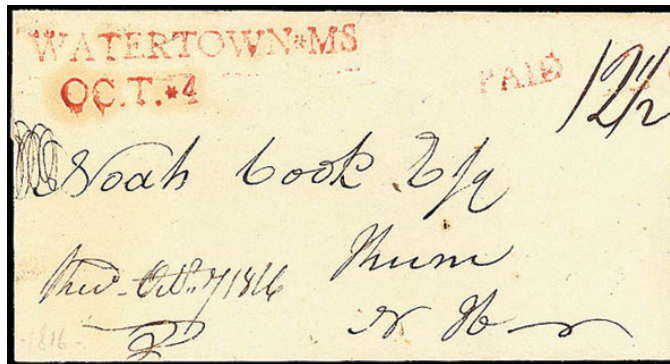 WATERTOWN*MS
OCT.*4
PAID
12½
Noah Cook Esq
Keene
N H
Recd Oct. 7 1816
1816